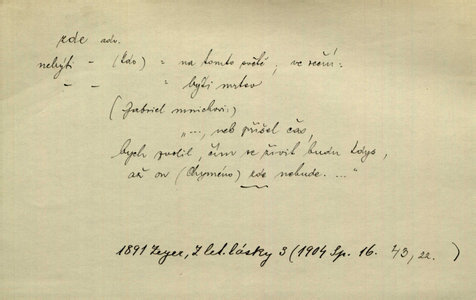 zde adv.
nebýti - (kdo) = na tomto světě, ve rčení:
- - " býti mrtev
(Gabriel mnichovi:)
"..., neb přišel čas,
bych zvolil, čím se živit budu kdys,
až on (Chymeno) zde nebude. ..."
1891 Zeyer, Z let. lásky 3 (1904 Sp. 16. 43, 22.)